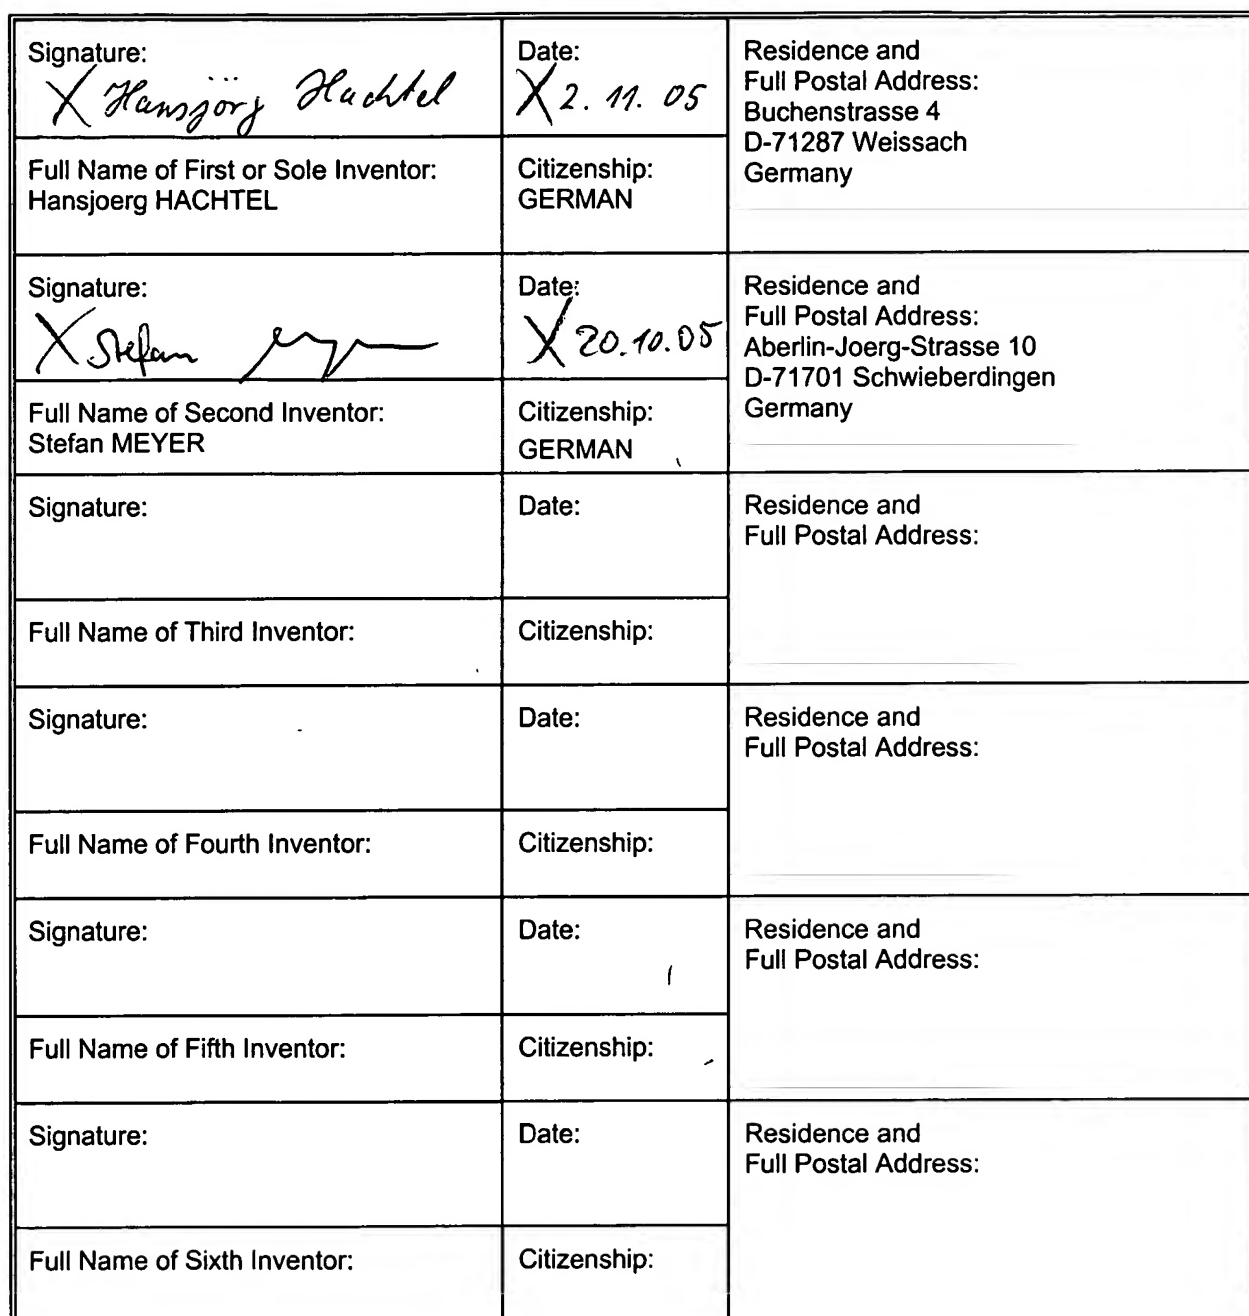 Signature:
X Hansjörg Hachtel
Date:
X 2. 11. 05
Residence and
Full Postal Address:
Buchenstrasse 4
D-71287 Weissach
Germany
Full Name of First or Sole Inventor:
Hansjoerg HACHTEL
Citizenship:
GERMAN
Signature:
X Stefan
Date:
X 20.10.05
Residence and
Full Postal Address:
Aberlin-Joerg-Strasse 10
D-71701 Schwieberdingen
Germany
Full Name of Second Inventor:
Stefan MEYER
Citizenship:
GERMAN
Signature:
Date:
Residence and
Full Postal Address:
Full Name of Third Inventor:
Citizenship:
Signature:
Date:
Residence and
Full Postal Address:
Full Name of Fourth Inventor:
Citizenship:
Signature:
Date:
Residence and
Full Postal Address:
Full Name of Fifth Inventor:
Citizenship:
Signature:
Date:
Residence and
Full Postal Address:
Full Name of Sixth Inventor:
Citizenship: